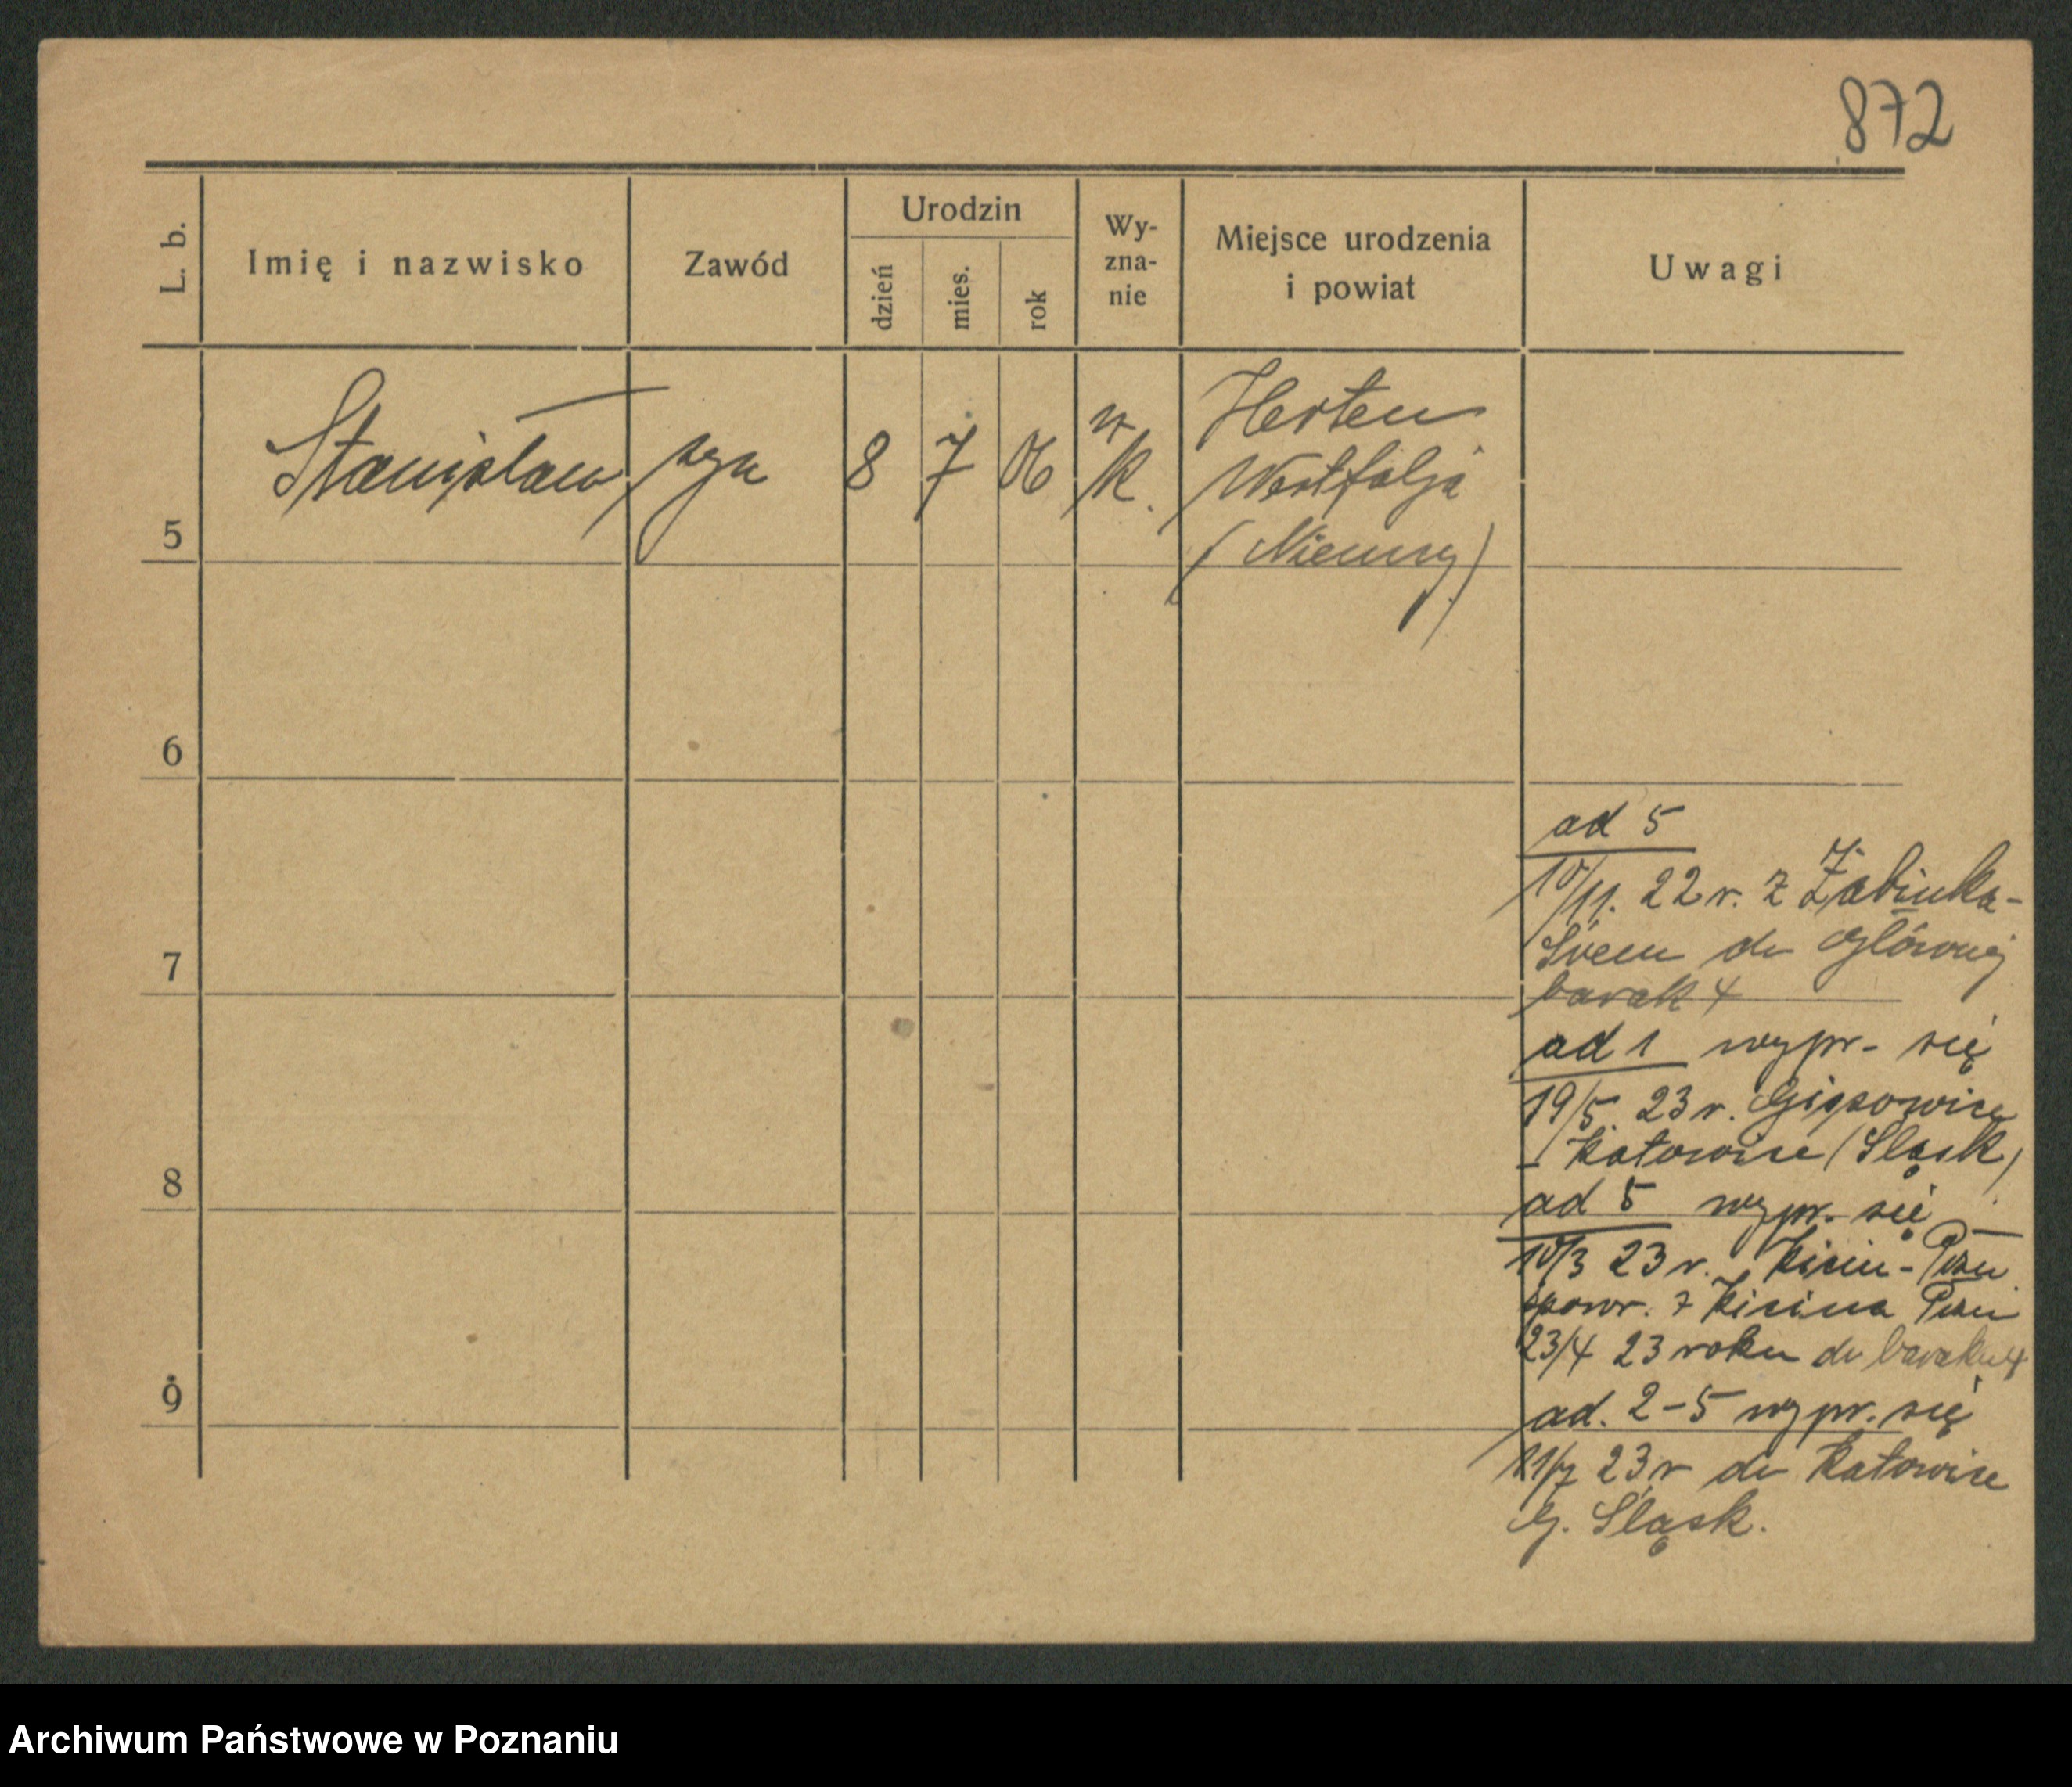 872
L. b.
Imię i nazwisko
Zawód
Urodzin
dzień
mies.
rok
Wy-
zna-
nie
Miejsce urodzenia
i powiat
Uwagi
5
Stanisław
syn
8
7
06
r
k.
Herten
Westfalja
(Niemcy)
6
7
8
9
ad 5
10/11. 22 r. z Żabinka-
Śrem do Głównej
barak 4
ad 1 wypr- się
19/5 23 r.
- Katowice (Śląsk)
ad 5 wypr. się
10/3 23 r. Kicin - Pozn
powr. z Kicina Pozn
23/4 23 roku do baraku 4
ad. 2-5 wypr. się
11/7 23 r do Katowice
G. Śląsk.
Archiwum Państwowe w Poznaniu